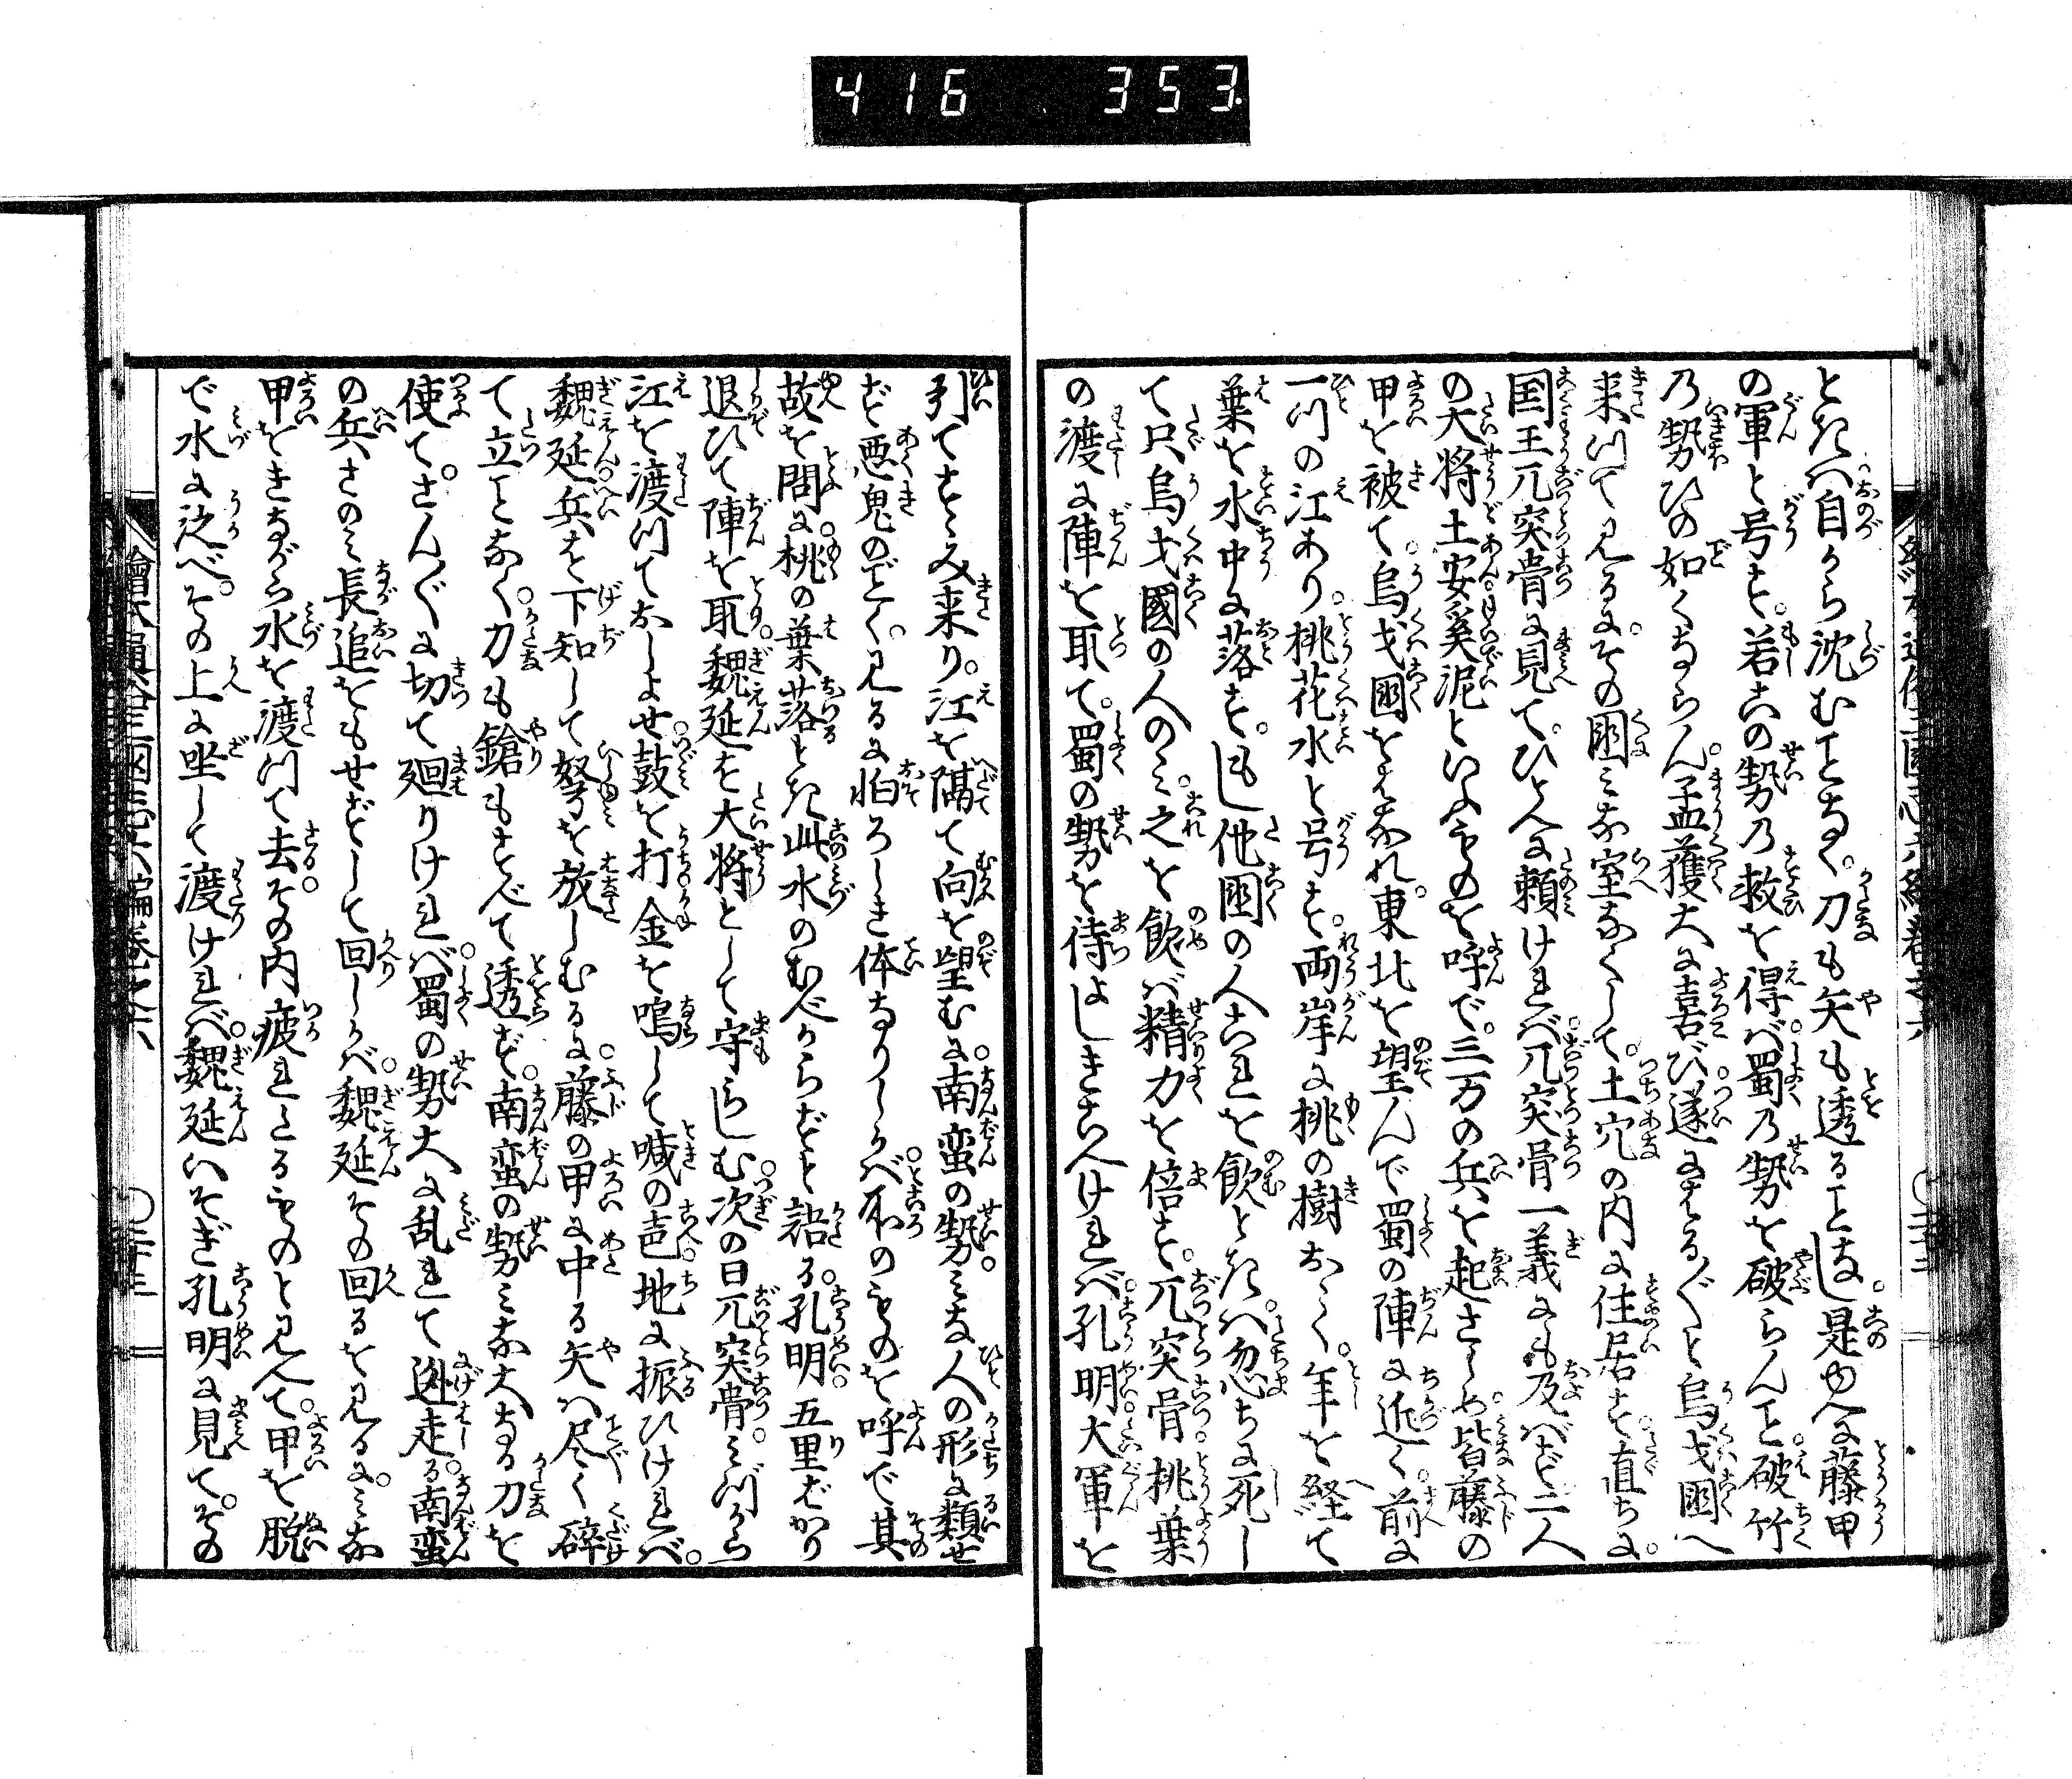 416 353
ときハ自から沈むことなく。刀も矢も透ることなし。是ゆへに藤甲
の軍と号す。若この勢の救を得ば蜀の勢を破らんこと。破竹
の勢ひの如くならん。孟獲大に喜び遂にはる〴〵と烏戈国へ
来ツて見るに。その国みな室なくして。土穴の内に住居す。直ちに。
国王兀突骨に見て。ひとへに頼けれバ。兀突骨一義にも及バず二人
の大将土安奚泥といふものを呼で。三万の兵を起さしめ。皆藤の
甲を被て。烏戈国をはなれ。東北を望んで蜀の陣に近く。前に
一ツの江あり。桃花水と号す。両岸に桃の樹おゝく。年を経て
葉を水中に落す。もし他国の人これを飲ときハ。忽ちに死し
て只烏戈國の人のミ。之を飲バ精力を倍す。兀突骨桃葉
の渡に陣を取て。蜀の勢を待よしきこへけれバ。孔明。大軍を
引てすゝみ来り。江を隔て向を望むに。南蛮の勢。ミな人の形に類せ
ず悪鬼のごとく。見るに怕ろしき体なりしかバ。所のものを呼で其
故を問に。桃の葉落るとき此水のむべからずと語る。孔明。五里ばかり
退ひて陣を取。魏延を大将として守らしむ。次の日兀突骨。ミづから
江を渡ツておしよせ。鼓を打金を鳴して喊の声。地に振ひけれバ。
魏延。兵を下知して弩を放しむるに。藤の甲に中る矢ハ尽く砕
て立ことなく。刀も鎗もすべて透ず。南蛮の勢ミな大なる刀を
使て。さん〴〵に切て廻りけれバ。蜀の勢大に乱れて逃走る。南蛮
の兵さのミ長追をもせずして回しかバ。魏延その回るを見るに。ミな
甲をきながら水を渡ツて去。その内疲れたるものと見へて。甲を脱
で水に泛べ。その上に坐して渡けれバ。魏延いそぎ孔明に見て。その
繪本通俗三國志六編巻之六